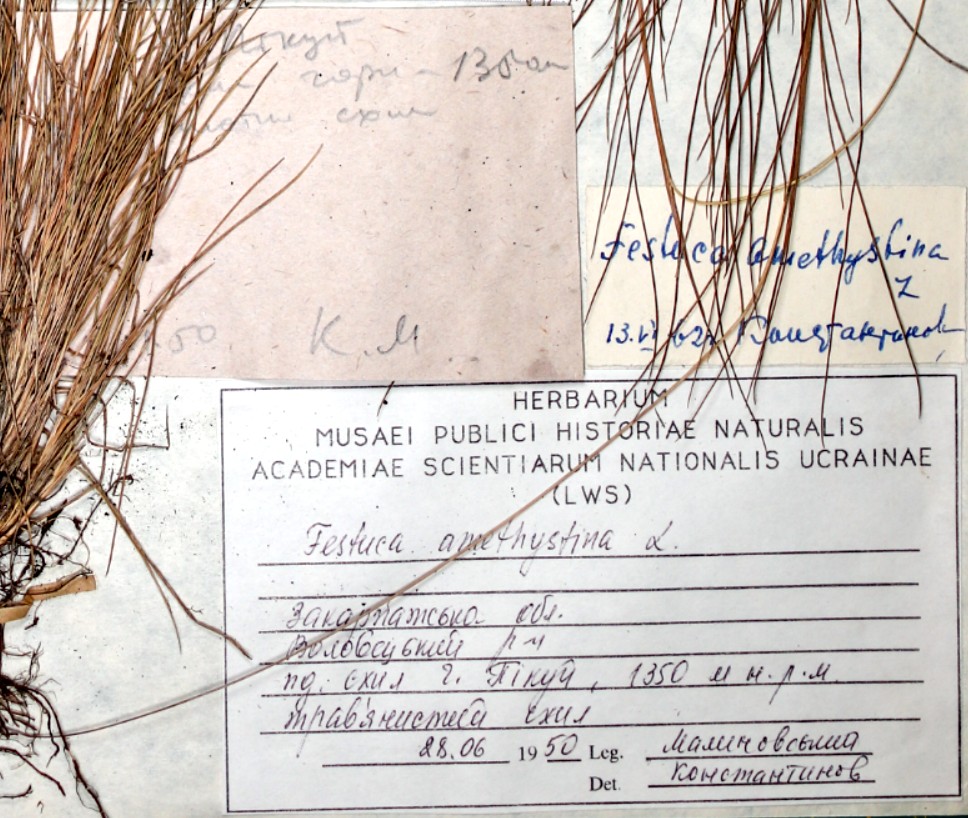 Пікуй
гори - 1350 м
схил
50 К. М.
Festuca amethystina
L
13.VI 62 Константинов
HERBARIUM
MUSAEI PUBLICI HISTORIAE NATURALIS
ACADEMIAE SCIENTIARUM NATIONALIS UCRAINAE
(LWS)
Festuca amethystina L.
Закарпатська обл.
Воловецький р-н
пд. схил г. Пікуй, 1350 м н.р.м.
трав'янистий схил
28.06 1950 Leg. Малиновський
Det. Константинов